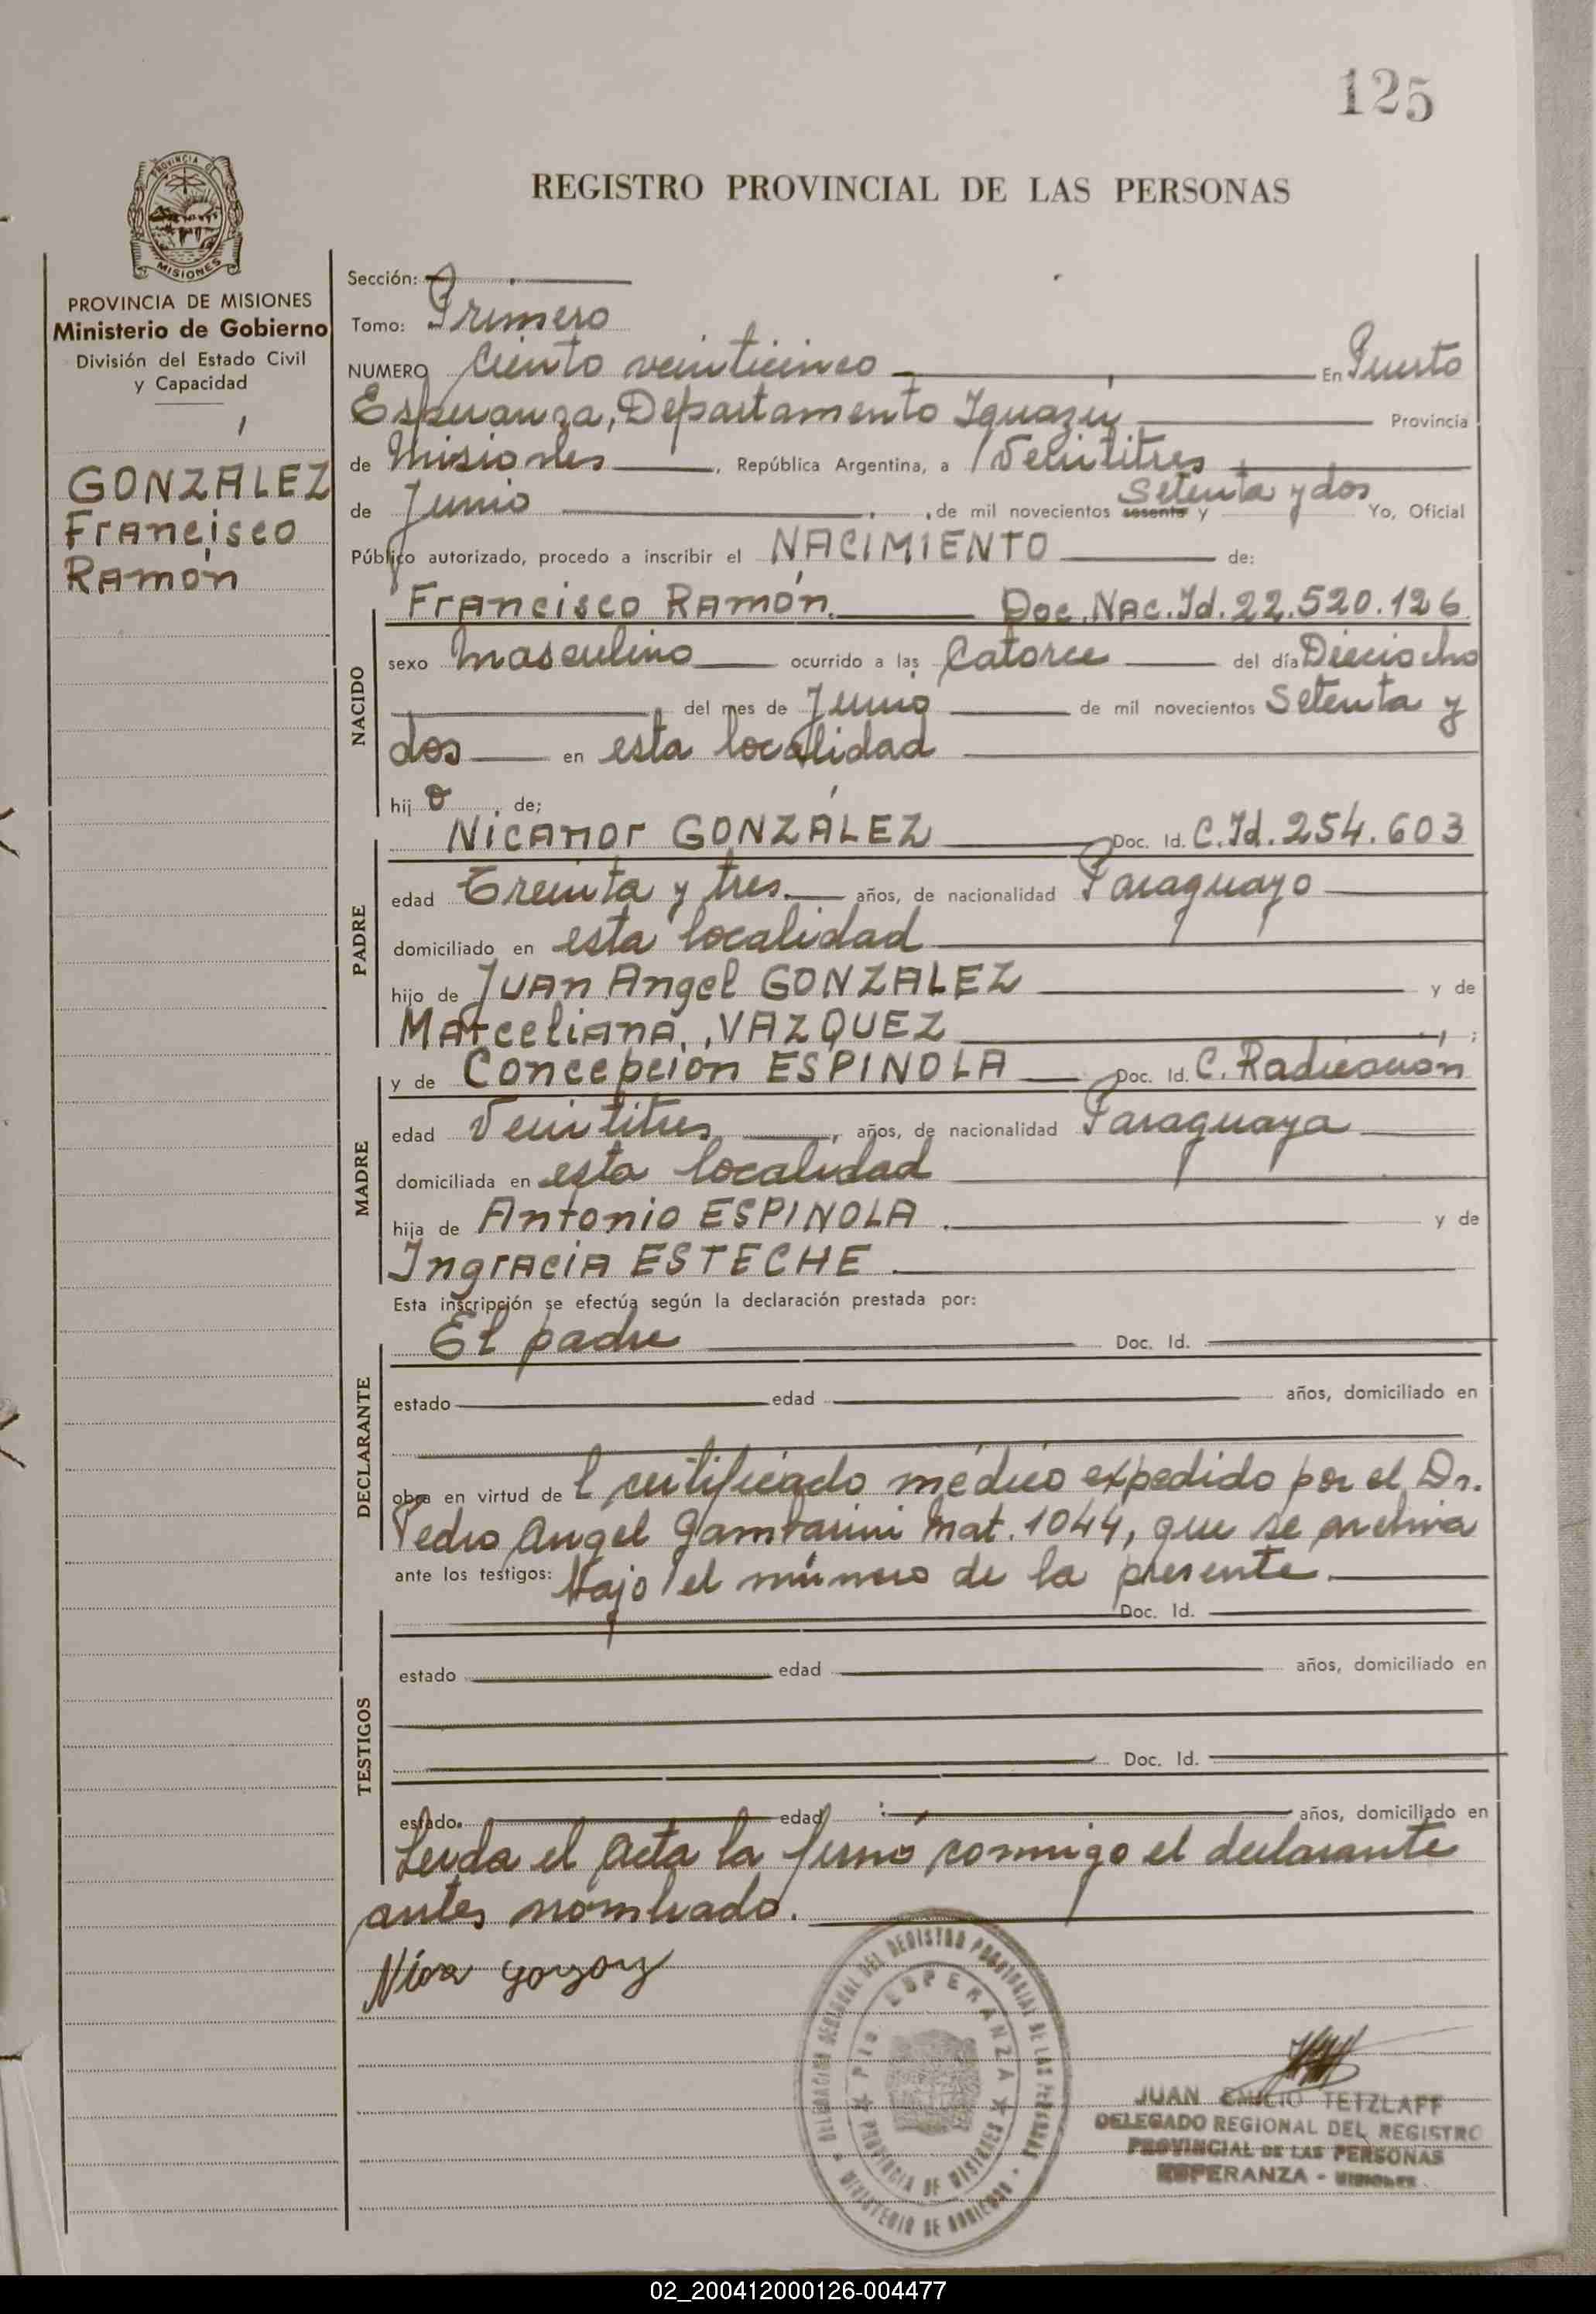 125
REGISTRO PROVINCIAL DE LAS PERSONAS
PROVINCIA DE
MISIONES
PROVINCIA DE MISIONES
Ministerio de Gobierno
División del Estado Civil
y Capacidad
GONZALEZ
Francisco
Ramón
Sección:
Tomo: Primero
NUMERO Ciento veinticinco En Puerto
Esperanza, Departamento Iguazú Provincia
de Misiones, República Argentina, a Veintitres
de Junio, de mil novecientos sesenta y Setenta y dos Yo, Oficial
Público autorizado, procedo a inscribir el NACIMIENTO de:
Francisco Ramón. Doc. Nac. Id. 22.520.126
NACIDO
sexo masculino ocurrido a las Catorce del día Dieciocho
del mes de Junio de mil novecientos Setenta y
dos en esta localidad
hijo de;
Nicanor GONZÁLEZ Doc. Id. C.Id. 254.603
PADRE
edad Treinta y tres. años, de nacionalidad Paraguayo
domiciliado en esta localidad
hijo de Juan Angel GONZALEZ y de
Marceliana VAZQUEZ ;
y de Concepcion ESPINOLA Doc. Id. C. Radicación
MADRE
edad Veintitres, años, de nacionalidad Paraguaya
domiciliada en esta localidad
hija de Antonio ESPINOLA. y de
Ingracia ESTECHE.
Esta inscripción se efectúa según la declaración prestada por:
El padre Doc. Id.
DECLARANTE
estado edad años, domiciliado en
obra en virtud de l certificado médico expedido por el Dr.
Pedro Angel Gambarini Mat. 1044, que se archiva
ante los testigos: bajo el número de la presente.
Doc. Id.
TESTIGOS
estado edad años, domiciliado en
Doc. Id.
estado. edad años, domiciliado en
Leida el Acta la firmó conmigo el declarante
antes nombrado.
DELEGACION SECCIONAL DEL REGISTRO PROVINCIAL DE LAS PERSONAS
PTO ESPERANZA
PROVINCIA DE MISIONES
MINISTERIO DE GOBIERNO
JUAN EMILIO TETZLAFF
DELEGADO REGIONAL DEL REGISTRO
PROVINCIAL DE LAS PERSONAS
ESPERANZA - MISIONES
02_200412000126-004477